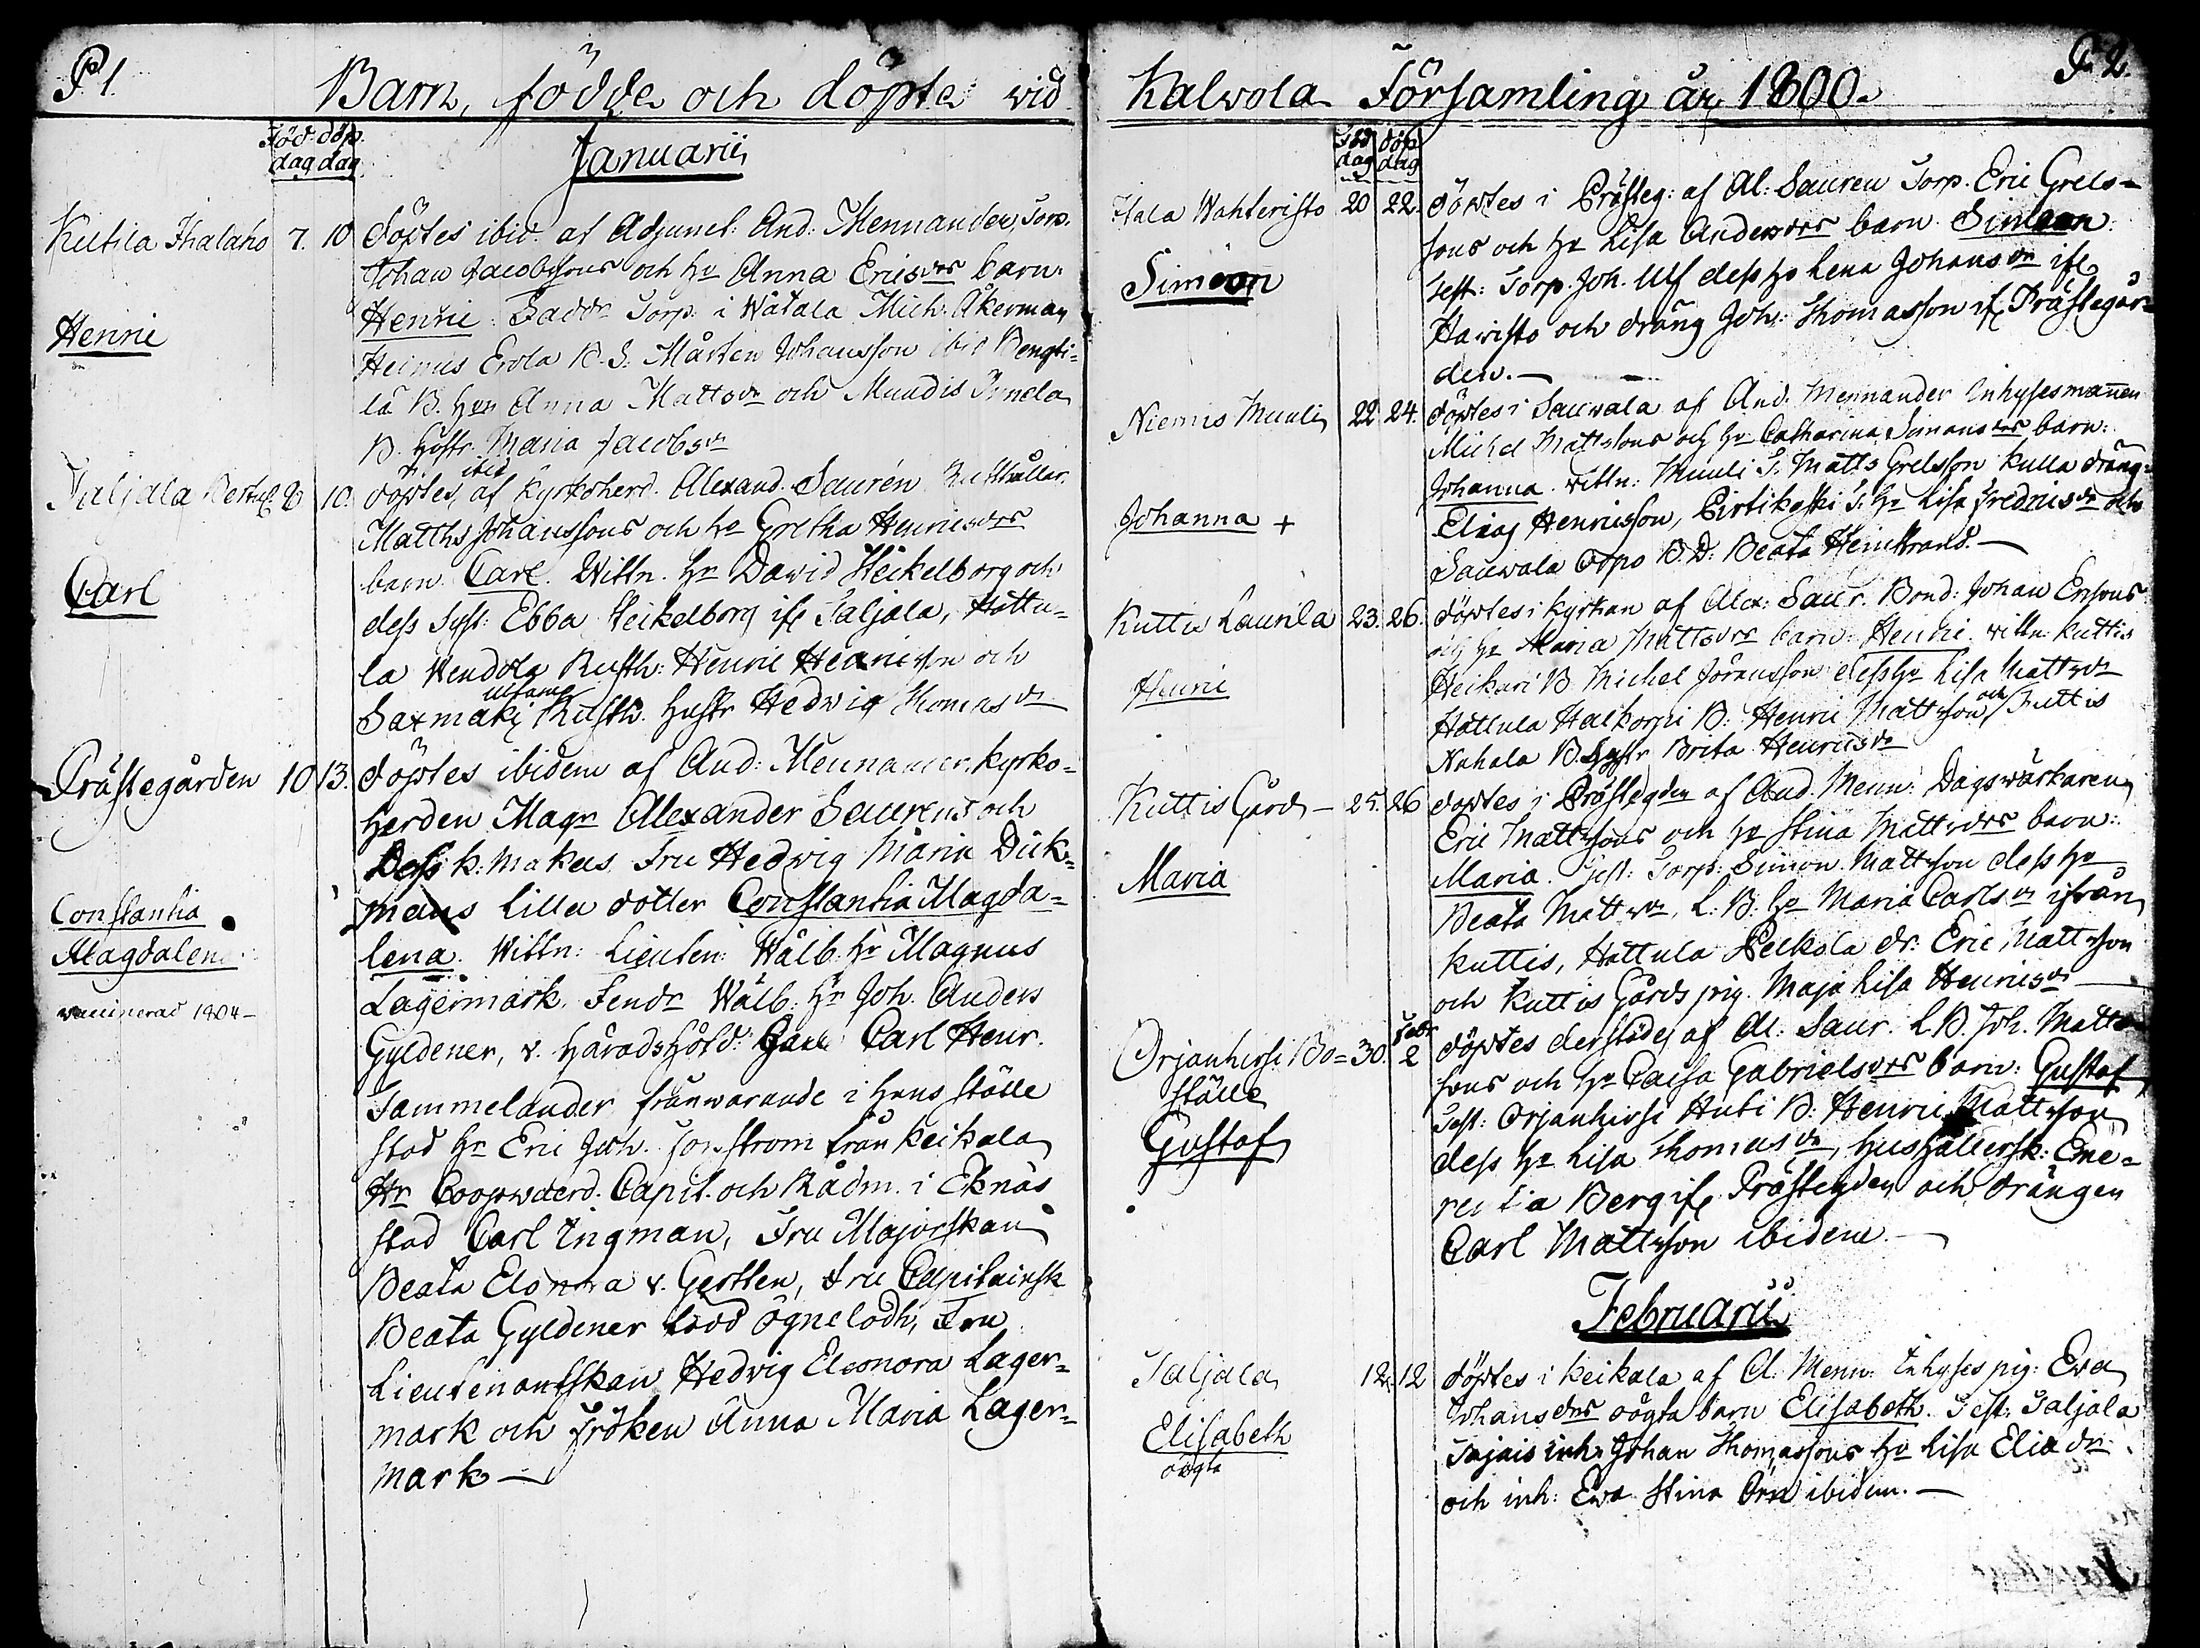 P 1.
Barn, födde och döpte wid
Föd. döp.
dag dag
Januarii
Kutila Ihalaho 7. 10 döptes ibid. af Adjunct. And: Mennander, Torp.
Johan Jacobssons och hu Anna Ericsdrs barn:
Henric
Henric: Fadd: Torp. i Wätala Mich: Åkerman
Heimis Erola B. S: Mårten Johansson ibid Bengti-
lä B. hu Anna Mattsdr och Muudis
B. hustr. Maria Jacobsdr
ibid
Taljala 8 10. döptes, af Kyrkoherd. Alexand. Saurén Rusthållar.
Matths Johanssons och hu Gretha Henricsdrs
Carl
barn Carl. Wittn. hr David Heikelborg och
dess syst: Ebba Heikelborg ifr Taljala, Hattu-
la Wendola Rusth: Henric Henricson och
Saxmäki Rusth. hustr Hedwig Thomasdr
Prästegården 10 13. döptes ibidem af And: Mennander. kyrko-
herden Magr Alexander Saurens och
Dess k: Makas Fru Hedwig Maria Dick-
mans lilla dotter Constantia Magda-
Constantia
Magdalena
lena. Wittn: Lieuten: Wälb. hr Magnus
vaccinerad 1804 –
Lagermark. Fendr Wälb: hr Joh. Anders
Gyldener, v. häradshöfd: Carl Henr.
Tammelander frånwarande i hans ställe
stod hr Eric Joh. från Keikala
Hr Coopwaerd. Capit. och Rådm. i Eknäs
stad Carl Ingman, Fru Majorskan
Beata Elonora v. Gertten, Fru Capitainsk
Beata Gyldener född Ögnelodh, Fru
Lieutenantskan Hedvig Eleonora Lager-
mark och fröken Anna Maria Lager-
mark —
P 2.
Kalvola Församling år 1800.
Föd döp
dag dag
Itala Wahteristo 20 22. döptes i Prästeg: af Al: Sauren Torp. Eric Grels-
sons och hu Lisa Andersdrs barn Simeon:
Simeon
Test: Torp. Joh. Ulf dess hu Lena Johansdr ifr
Hawisto och dräng Joh: Thomasson ifr Prästegår-
den. —
Niemis Muuli 22 24. döptes i Sauvala af And. Mennander Inhysesmannen
Michel Mattssons och hu Catharina Simonsdrs barn:
Johanna +
Johanna. wittn: Muuli S. Matts Grelsson Kulla dräng
Elias Henricsson, Pirtikoski S. hu Lisa Fredricsdr och
Sauvala Torp B. D: Beata Henstrand. —
Kuttis Laurila 23. 26. döptes i kyrkan af Alex: Saur. Bond: Johan Ersons
och hu Maria Mattsdrs barn: Henric. wittn: Kuttis
Henric
Heikari B. Michel Jöransson dess hu Lisa Mattsdr
Hattula Halkorpi B: Henric Mattsson och Kuttis
Nahala B. hustr Brita Henricsdr
Kuttis Gård – 25. 26 döptes i Prästegden af And. Menn: Dagswärkaren
Eric Mattssons och hu Stina Mattsdrs barn:
Maria
Maria. Test: Torp: Simon Mattsson dess hu
Beata Mattsdr, L: B: hu Maria Carlsdr ifrån
Kuttis, Hattula Pelkola dr: Eric Mattsson
och Kuttis Gårds pig. Maja Lisa Henricsdr —
Febr
Orjanhirsi Bo- 30. 2 döptes derstädes af Al: Saur. L B. Joh. Matts-
ställe
sons och hu Caisa Gabrielsdrs barn: Gustaf
Gustaf
Test: Orjanhirsi Anti B: Henric Mattsson
dess hu Lisa Thomasdr, hushållersk: Eme-
rentia Berg ifr Prästegden och drängen
Carl Mattsson ibidem. —
Februarii
Taljala 12. 12 döptes i Keikala af A: Menn. Inhyses pig: Eva
Johansdrs oägta barn Elisabeth. Test: Taljala
Elisabeth
oägta
inh. Johan Thomassons hu Lisa Eliædr
och inh: Ewa Stina Örn ibidem. —